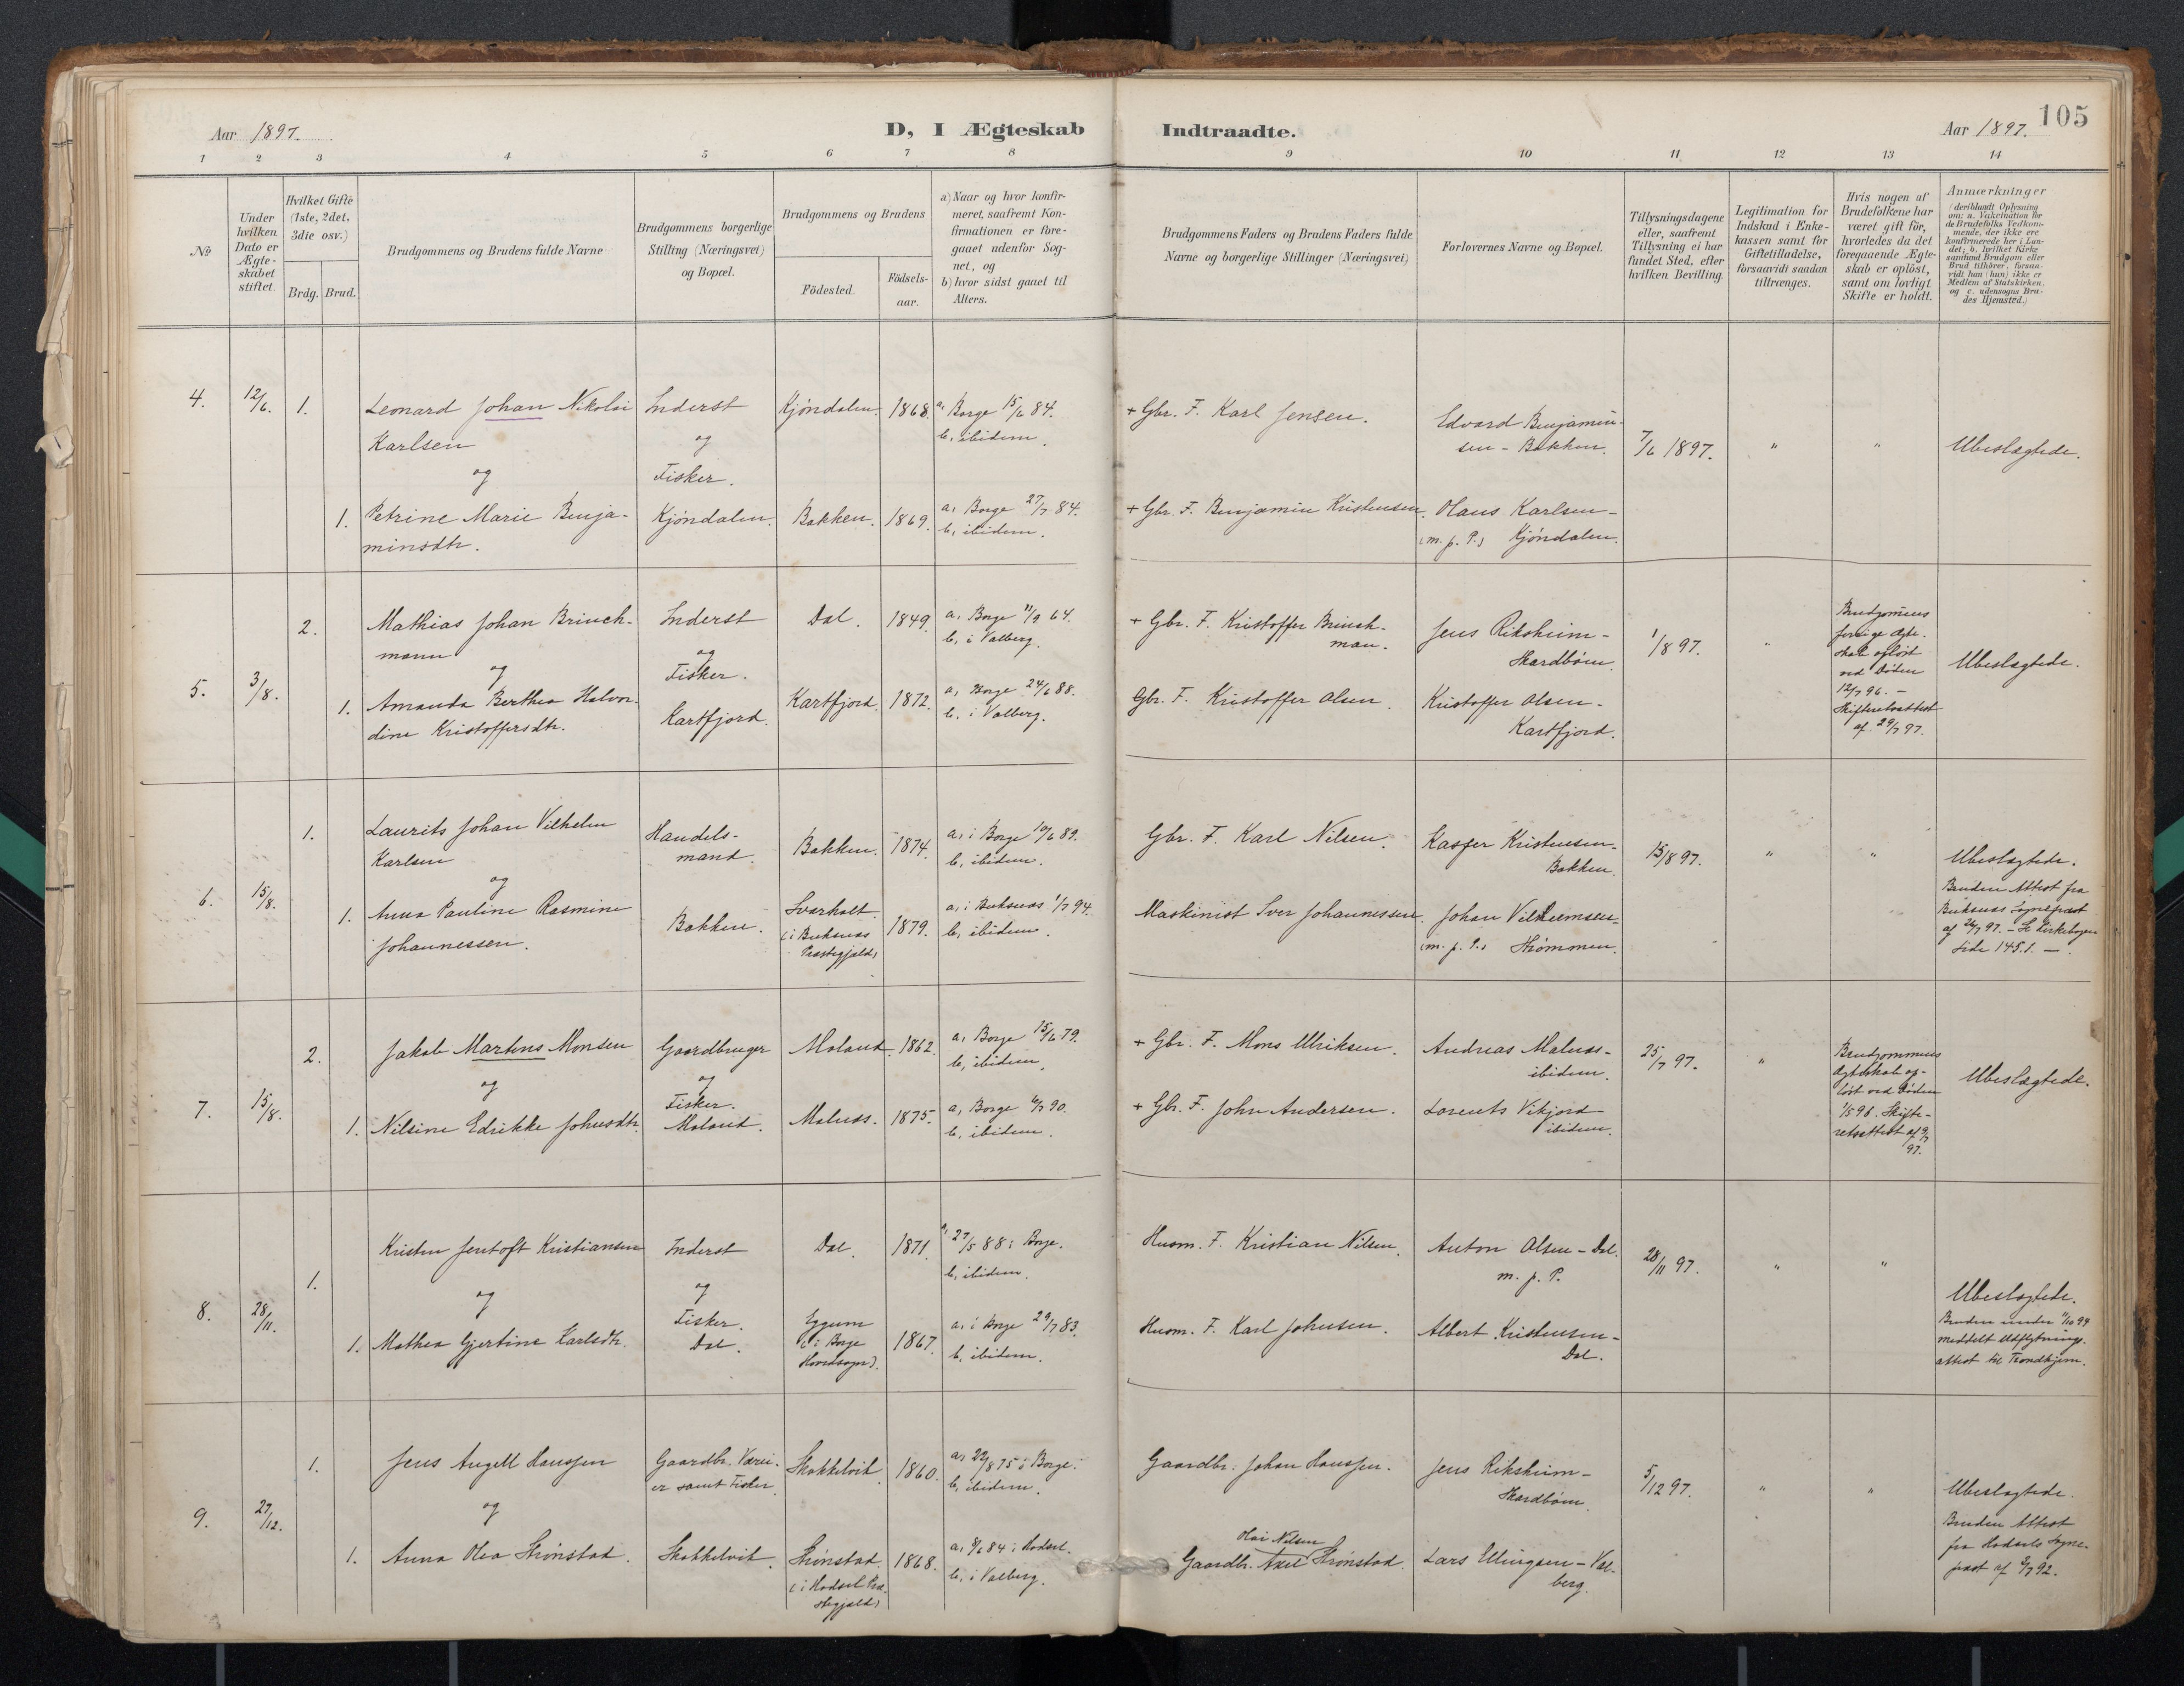 105
Aar 1897.
D, I Ægteskab Indtraadte.
Aar 1897.
1 2 3 4 5 6 7 8 9 10 11 12 13 14
No
Under hvilken Dato er Ægteskabet stiftet.
Hvilket Gifte (1ste, 2det, 3die osv.)
Brdg. Brud.
Brudgommens og Brudens fulde Navne
Brudgommens borgerlige Stilling (Næringsvei) og Bopæl.
Brudgommens og Brudens
Födested.
Födsels-aar.
a) Naar og hvor konfirmeret, saafremt Konfirmationen er foregaaet udenfor Sognet, og
b) hvor sidst gaaet til Alters.
Brudgommens Faders og Brudens Faders fulde Navne og borgerlige Stillinger (Næringsvei)
Forlovernes Navne og Bopæl.
Tillysningsdagene eller, saafremt Tillysning ei har fundet Sted, efter hvilken Bevilling.
Legitimation for Indskud i Enkekassen samt for Giftetilladelse, forsaavidt saadan tiltrænges.
Hvis nogen af Brudefolkene har været gift för, hvorledes da det foregaaende Ægteskab er oplöst, samt om lovligt Skifte er holdt.
Anmærkninger
(deriblandt Oplysning om: a. Vakcination for de Brudefolks Vedkommende, der ikke ere konfirmerede her i Landet; b. hvilket Kirkesamfund Brudgom eller Brud tilhører, forsaavidt han (hun) ikke er Medlem af Statskirken, og c. udensogns Brudes Hjemsted.)
4. 12/6. 1. Leonard Johan Nikolai Karlsen
og
1. Petrine Marie Benjaminsdtr.
Inderst
og
Fisker.
Kjöndalen.
Kjöndalen. 1868. a, Borge 15/6 84.
b, ibidem.
Bakken. 1869. a, Borge 27/7 84.
b, ibidem.
+ Gbr. F. Karl Jensen.
+ Gbr. F. Benjamin Kristensen.
Edvard Benjaminsen - Bakken.
Olaus Karlsen -
(m. p. P.) Kjöndalen.
7/6 1897. " " Ubeslægtede.
5. 3/8. 2. Mathias Johan Brinchmann
og
1. Amanda Berthea Halvordine Kristoffersdtr.
Inderst
og
Fisker.
Kartfjord.
Dal. 1849. a, Borge 11/9 64.
b, i Valberg.
Kartfjord. 1872. a, Borge 24/6 88.
b, i Valberg.
+ Gbr. F. Kristoffer Brinchman.
Gbr. F. Kristoffer Olsen.
Jens Riksheim -
Skardböen.
Kristoffer Olsen -
Kartfjord.
1/8 97. "
Brudgommens forrige Ægteskab oplöst ved Döden 12/7 96. - Skifteretsattest af 29/7 97.
Ubeslægtede.
6. 15/8. 1. Laurits Johan Vilhelm Karlsen
og
1. Anna Pauline Rasmine Johannessen.
Handelsmand.
Bakken.
Bakken. 1874. a, i Borge 10/6 89.
b, ibidem.
Svarholt.
(i Buksnæs Præstegjeld) 1879. a, i Buksnæs 1/7 94.
b, ibidem.
Gbr. F. Karl Nilsen.
Maskinist Iver Johannessen.
Kasper Kristensen -
Bakken.
Johan Vilhelmsen -
(m. p. P.) Strömmen.
15/8 97. " "
Ubeslægtede.
Bruden Attest fra
Buksnæs Sognepræst
af 26/7 97. - Se Kirkebogen
Side 145.1. -
7. 15/8. 2. Jakob Martens Monsen
og
1. Nilsine Edrikke Johnsdtr.
Gaardbruger
og
Fisker.
Moland.
Moland. 1862. a, Borge 15/6 79.
b, ibidem.
Malnæs. 1875. a, Borge 6/7 90.
b, ibidem.
+ Gbr. F. Mons Ulriksen.
+ Gbr. F. John Andersen.
Andreas Malnæs -
ibidem.
Lorents Vikjord
ibidem.
25/7 97. "
Brudgommens
Ægteskab oplöst ved Döden
1/5 96. Skifteretsattest af 9/7
97.
Ubeslægtede.
8. 28/11. 1. Kristen Jentoft Kristiansen
og
1. Mathea Gjertine Karlsdtr.
Inderst
og
Fisker.
Dal.
Dal. 1871. a, 27/5 88 i Borge.
b, ibidem.
Eggum
(i Borge
Hovedsogn). 1867. a, i Borge 29/7 83.
b, ibidem.
Husm. F. Kristian Nilsen.
Husm. F. Karl Johnsen.
Anton Olsen - Dal.
m. p. P.
Albert Kristensen -
Dal.
28/11 97. " "
Ubeslægtede.
Bruden under 11/10 94
meddelt Udflytnings-
attest til Trondhjem.
9. 27/12. 1. Jens Angell Hanssen
og
1. Anna Olea Strönstad.
Gaardbr. Værei-
er samt Fisker.
Skokkelvik.
Skokkelvik. 1860. a, 22/8 75 i Borge.
b, ibidem.
Strönstad.
(i Hadsel Præ-
stegjeld) 1868. a, 8/6 84 i Hadsel.
b, i Valberg.
Gaardbr. Johan Hanssen.
Olai Nilsen
Gaardbr. Axel Strönstad.
Jens Riksheim -
Skardböen.
Lars Ellingsen - Val-
berg.
5/12 97. " "
Ubeslægtede.
Bruden Attest
fra Hadsels Sogne-
præst af 2/7 92.